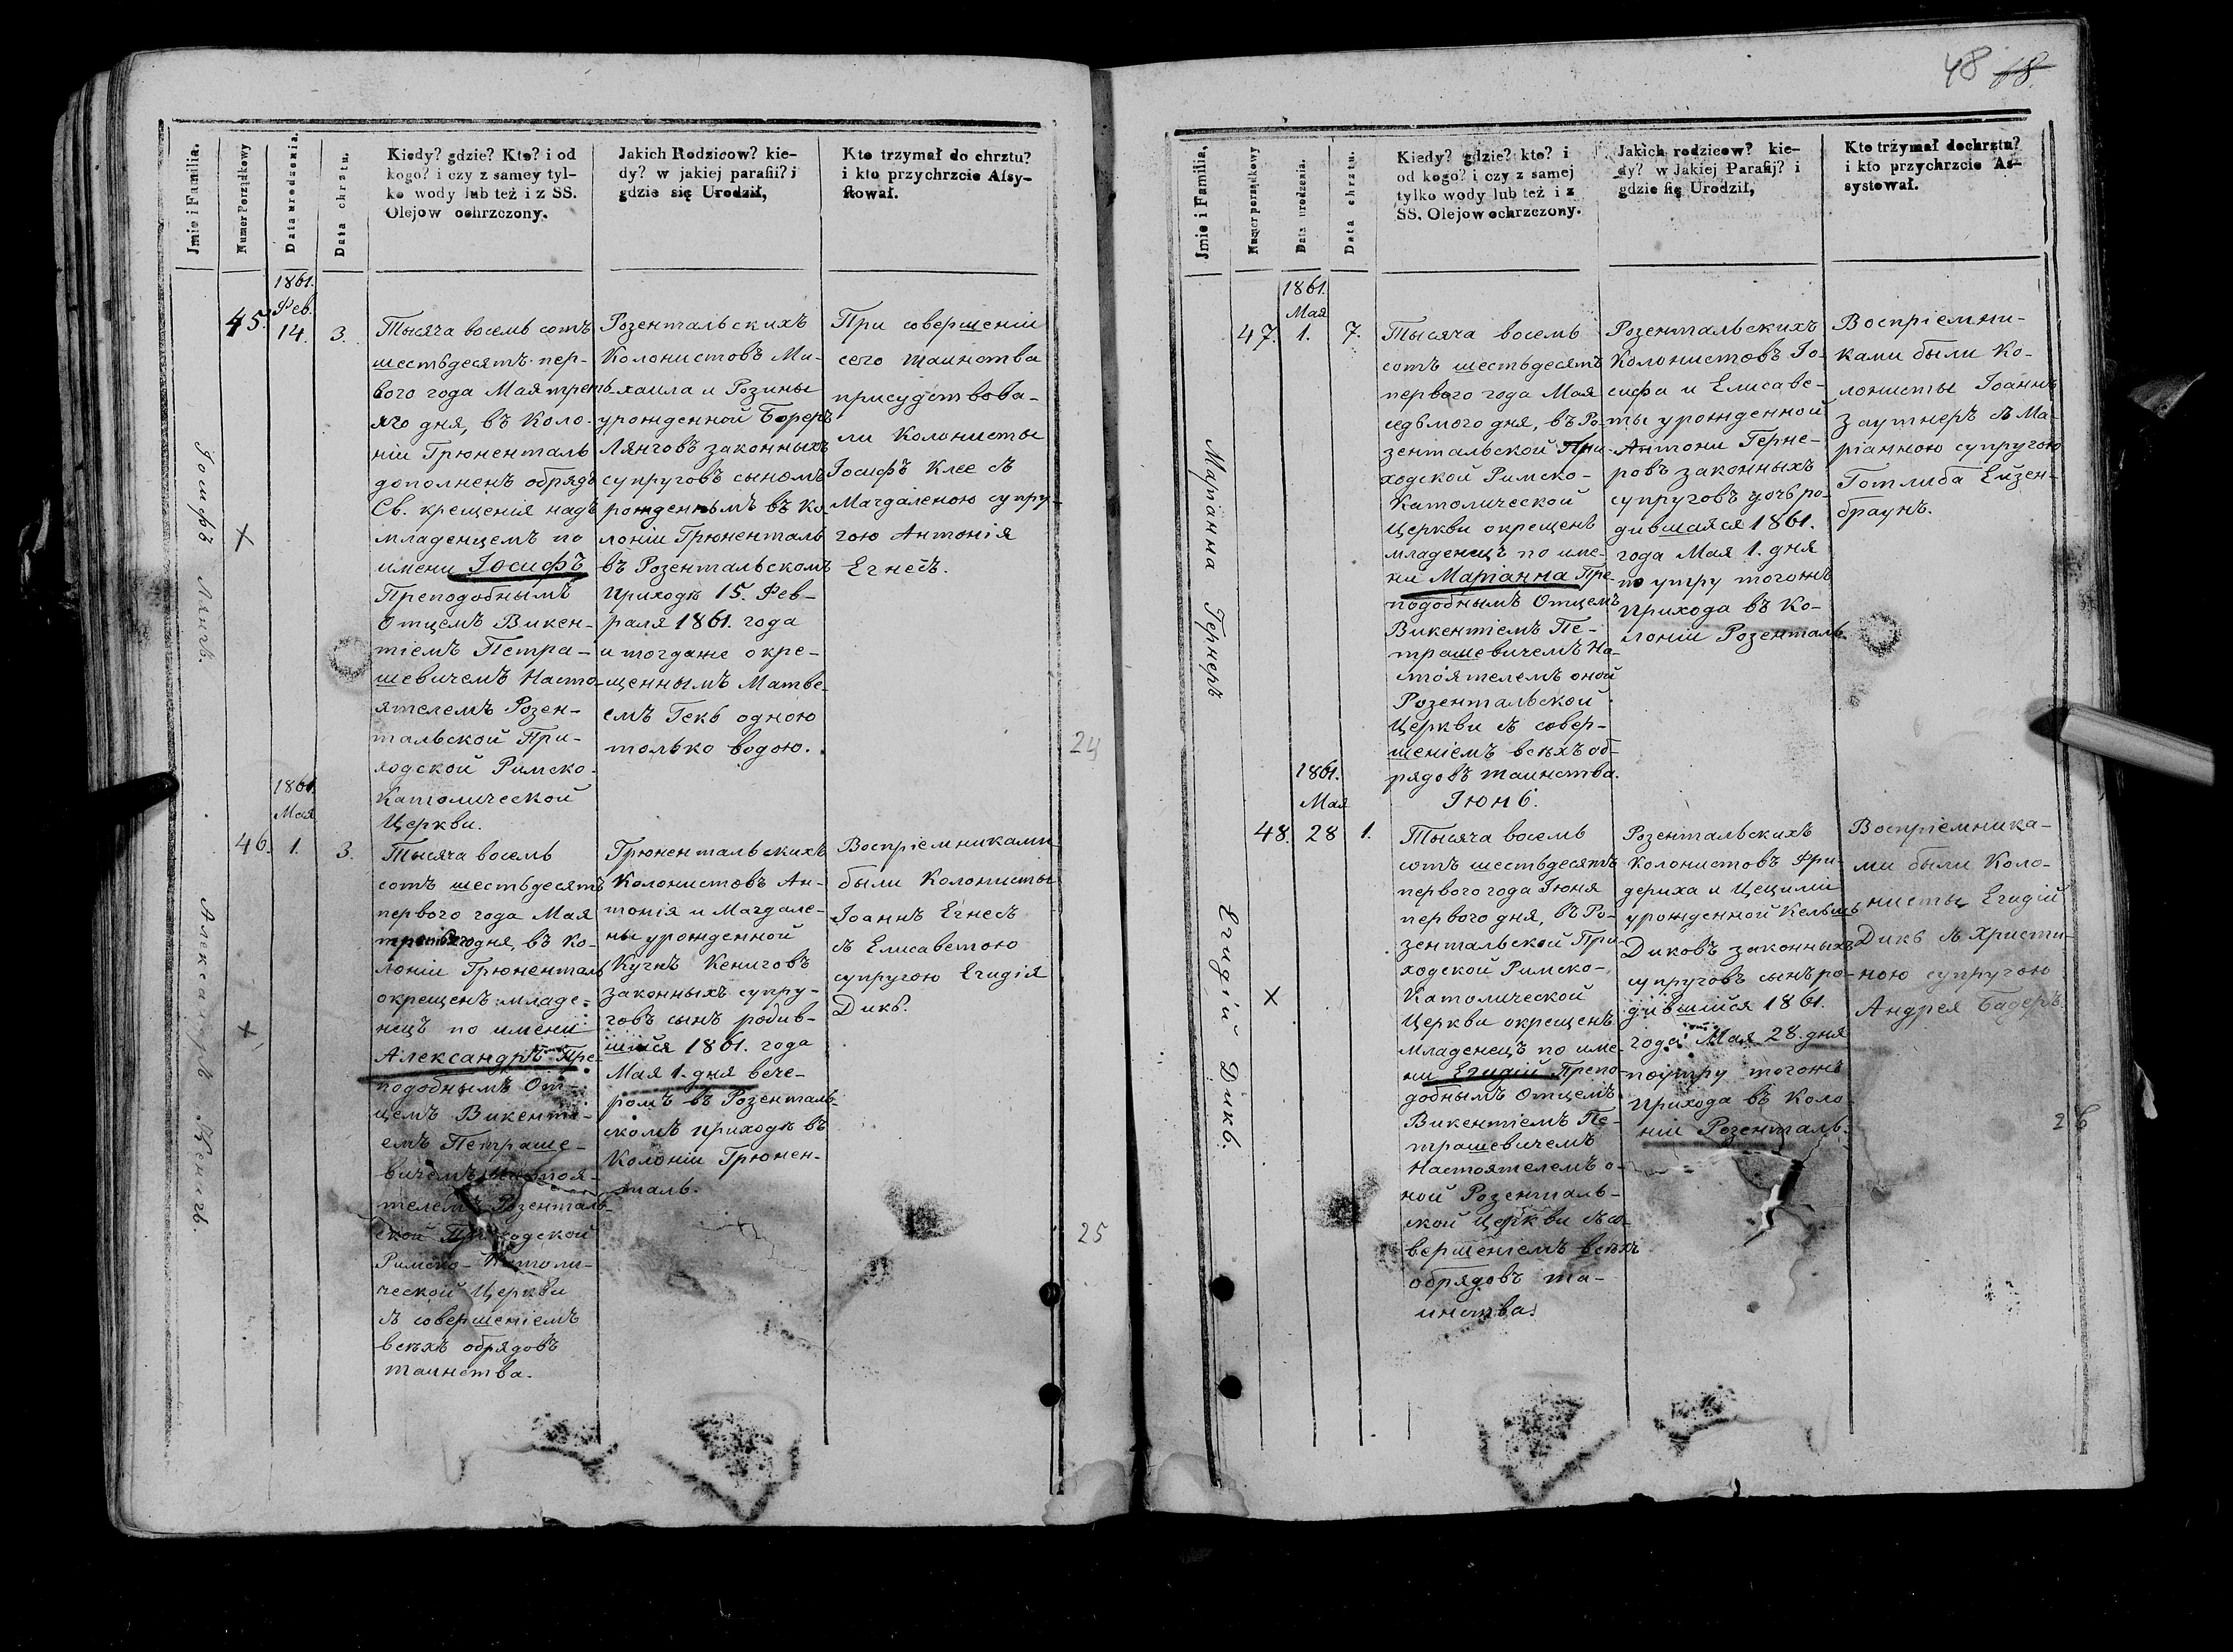 48 18.
Jmie i Familia.
Numer Porządkowy
Data urodzenia.
Data chrztu.
Kiedy? gdzie? Kto? i od
kogo? i czy z samey tyl-
ko wody lub też i z SS.
Olejow ochrzczony.
Jakich Rodzicow? kie-
dy? w jakiej parafii? i
gdzie się Urodził,
Kto trzymał do chrztu?
i kto przychrzcie Assy-
stował.
Іосифъ Лянгъ.
45.
1861.
Фев.
14.
3.
Тысяча восемь сотъ
шестьдесятъ пер-
вого года Мая треть-
яго дня, въ Коло-
ніи Грюненталь
дополненъ обрядъ
Св. крещенія надъ
младенцемъ по
имени Іосифъ
Преподобнымъ
Отцемъ Викен-
тіемъ Петра-
шевичемъ Насто-
ятелемъ Розен-
тальской При-
ходской Римско-
Католической
Церкви.
Розентальскихъ
Колонистовъ Ми-
хаила и Розины
урожденной Бореръ
Лянговъ законныхъ
супруговъ сыномъ
рожденнымъ въ Ко-
лоніи Грюненталь
въ Розентальскомъ
Приходѣ 15. Фев-
раля 1861. года
и тогдаже окре-
щеннымъ Матве-
емъ Гекъ одною
только водою.
При совершеніи
сего таинства
присудствова-
ли Колонисты
Іосифъ Клее съ
Магдаленою супру-
гою Антонія
Егнесъ.
24
Александръ Кенигъ.
46.
1861.
Мая
1.
3.
Тысяча восемь
сотъ шестьдесятъ
первого года Мая
третьяго дня, въ Ко-
лоніи Грюненталь
окрещенъ младе-
нецъ по имени
Александръ Пре-
подобнымъ От-
цемъ Викенті-
емъ Петраше-
вичемъ Настоя-
телемъ Розенталь-
ской Приходской
Римско-Католи-
ческой Церкви
съ совершеніемъ
всѣхъ обрядовъ
таинства.
Грюнентальскихъ
Колонистовъ Ан-
тонія и Магдале-
ны урожденной
Кугнъ Кениговъ
законныхъ супру-
говъ сынъ родив-
шійся 1861. года
Мая 1. дня вече-
ромъ въ Розенталь-
скомъ приходѣ въ
Колоніи Грюнен-
таль.
Воспріемниками
были Колонисты
Іоаннъ Егнесъ
съ Елисаветою
супругою Егидія
Дикъ.
25
Jmie i Familia,
Numer porządkowy
Data urodzenia.
Data chrztu.
Kiedy? gdzie? kto? i
od kogo? i czy z samej
tylko wody lub też i z
SS. Olejow ochrzczony.
Jakich rodzicow? kie-
dy? w Jakiej Parafij? i
gdzie się Urodził,
Kto trzymał dochrztu?
i kto przychrzcie As-
systował.
Маріанна Гернеръ
47.
1861.
Мая
1.
7.
Тысяча восемь
сотъ шестьдесятъ
первого года Мая
седьмого дня, въ Ро-
зентальской При-
ходской Римско-
Католической
Церкви окрещенъ
младенецъ по име-
ни Маріанна Пре-
подобнымъ Отцемъ
Викентіемъ Пе-
трашевичемъ На-
стоятелемъ оной
Розентальской
Церкви съ совер-
шеніемъ всѣхъ об-
рядовъ таинства.
Розентальскихъ
Колонистовъ Іо-
сифа и Елисаве-
ты урожденной
Антони Герне-
ровъ законныхъ
супруговъ дочь ро-
дившаяся 1861.
года Мая 1. дня
по утру тогожъ
Прихода въ Ко-
лоніи Розенталь.
Воспріемни-
ками были Ко-
лонисты Іоаннъ
Заутнеръ съ Ма-
ріанною супругою
Готлиба Ейзен-
браунъ.
Егидій Дикъ.
48.
1861.
Мая
28
Іюнь.
1.
Тысяча восемь
сотъ шестьдесятъ
первого года Іюня
первого дня, въ Ро-
зентальской При-
ходской Римско-
Католической
Церкви окрещенъ
младенецъ по име-
ни Егидій Препо-
добнымъ Отцемъ
Викентіемъ Пе-
трашевичемъ
Настоятелемъ о-
ной Розенталь-
ской Церкви съ со-
вершеніемъ всѣхъ
обрядовъ та-
инства.
Розентальскихъ
Колонистовъ Фри-
дериха и Цециліи
урожденной Кельшъ
Диковъ законныхъ
супруговъ сынъ ро-
дившійся 1861.
года Мая 28. дня
поутру тогожъ
Прихода въ Коло-
ніи Розенталь.
Воспріемника-
ми были Коло-
нисты Егидій
Дикъ съ Христи-
ною супругою
Андрея Бадеръ.
26